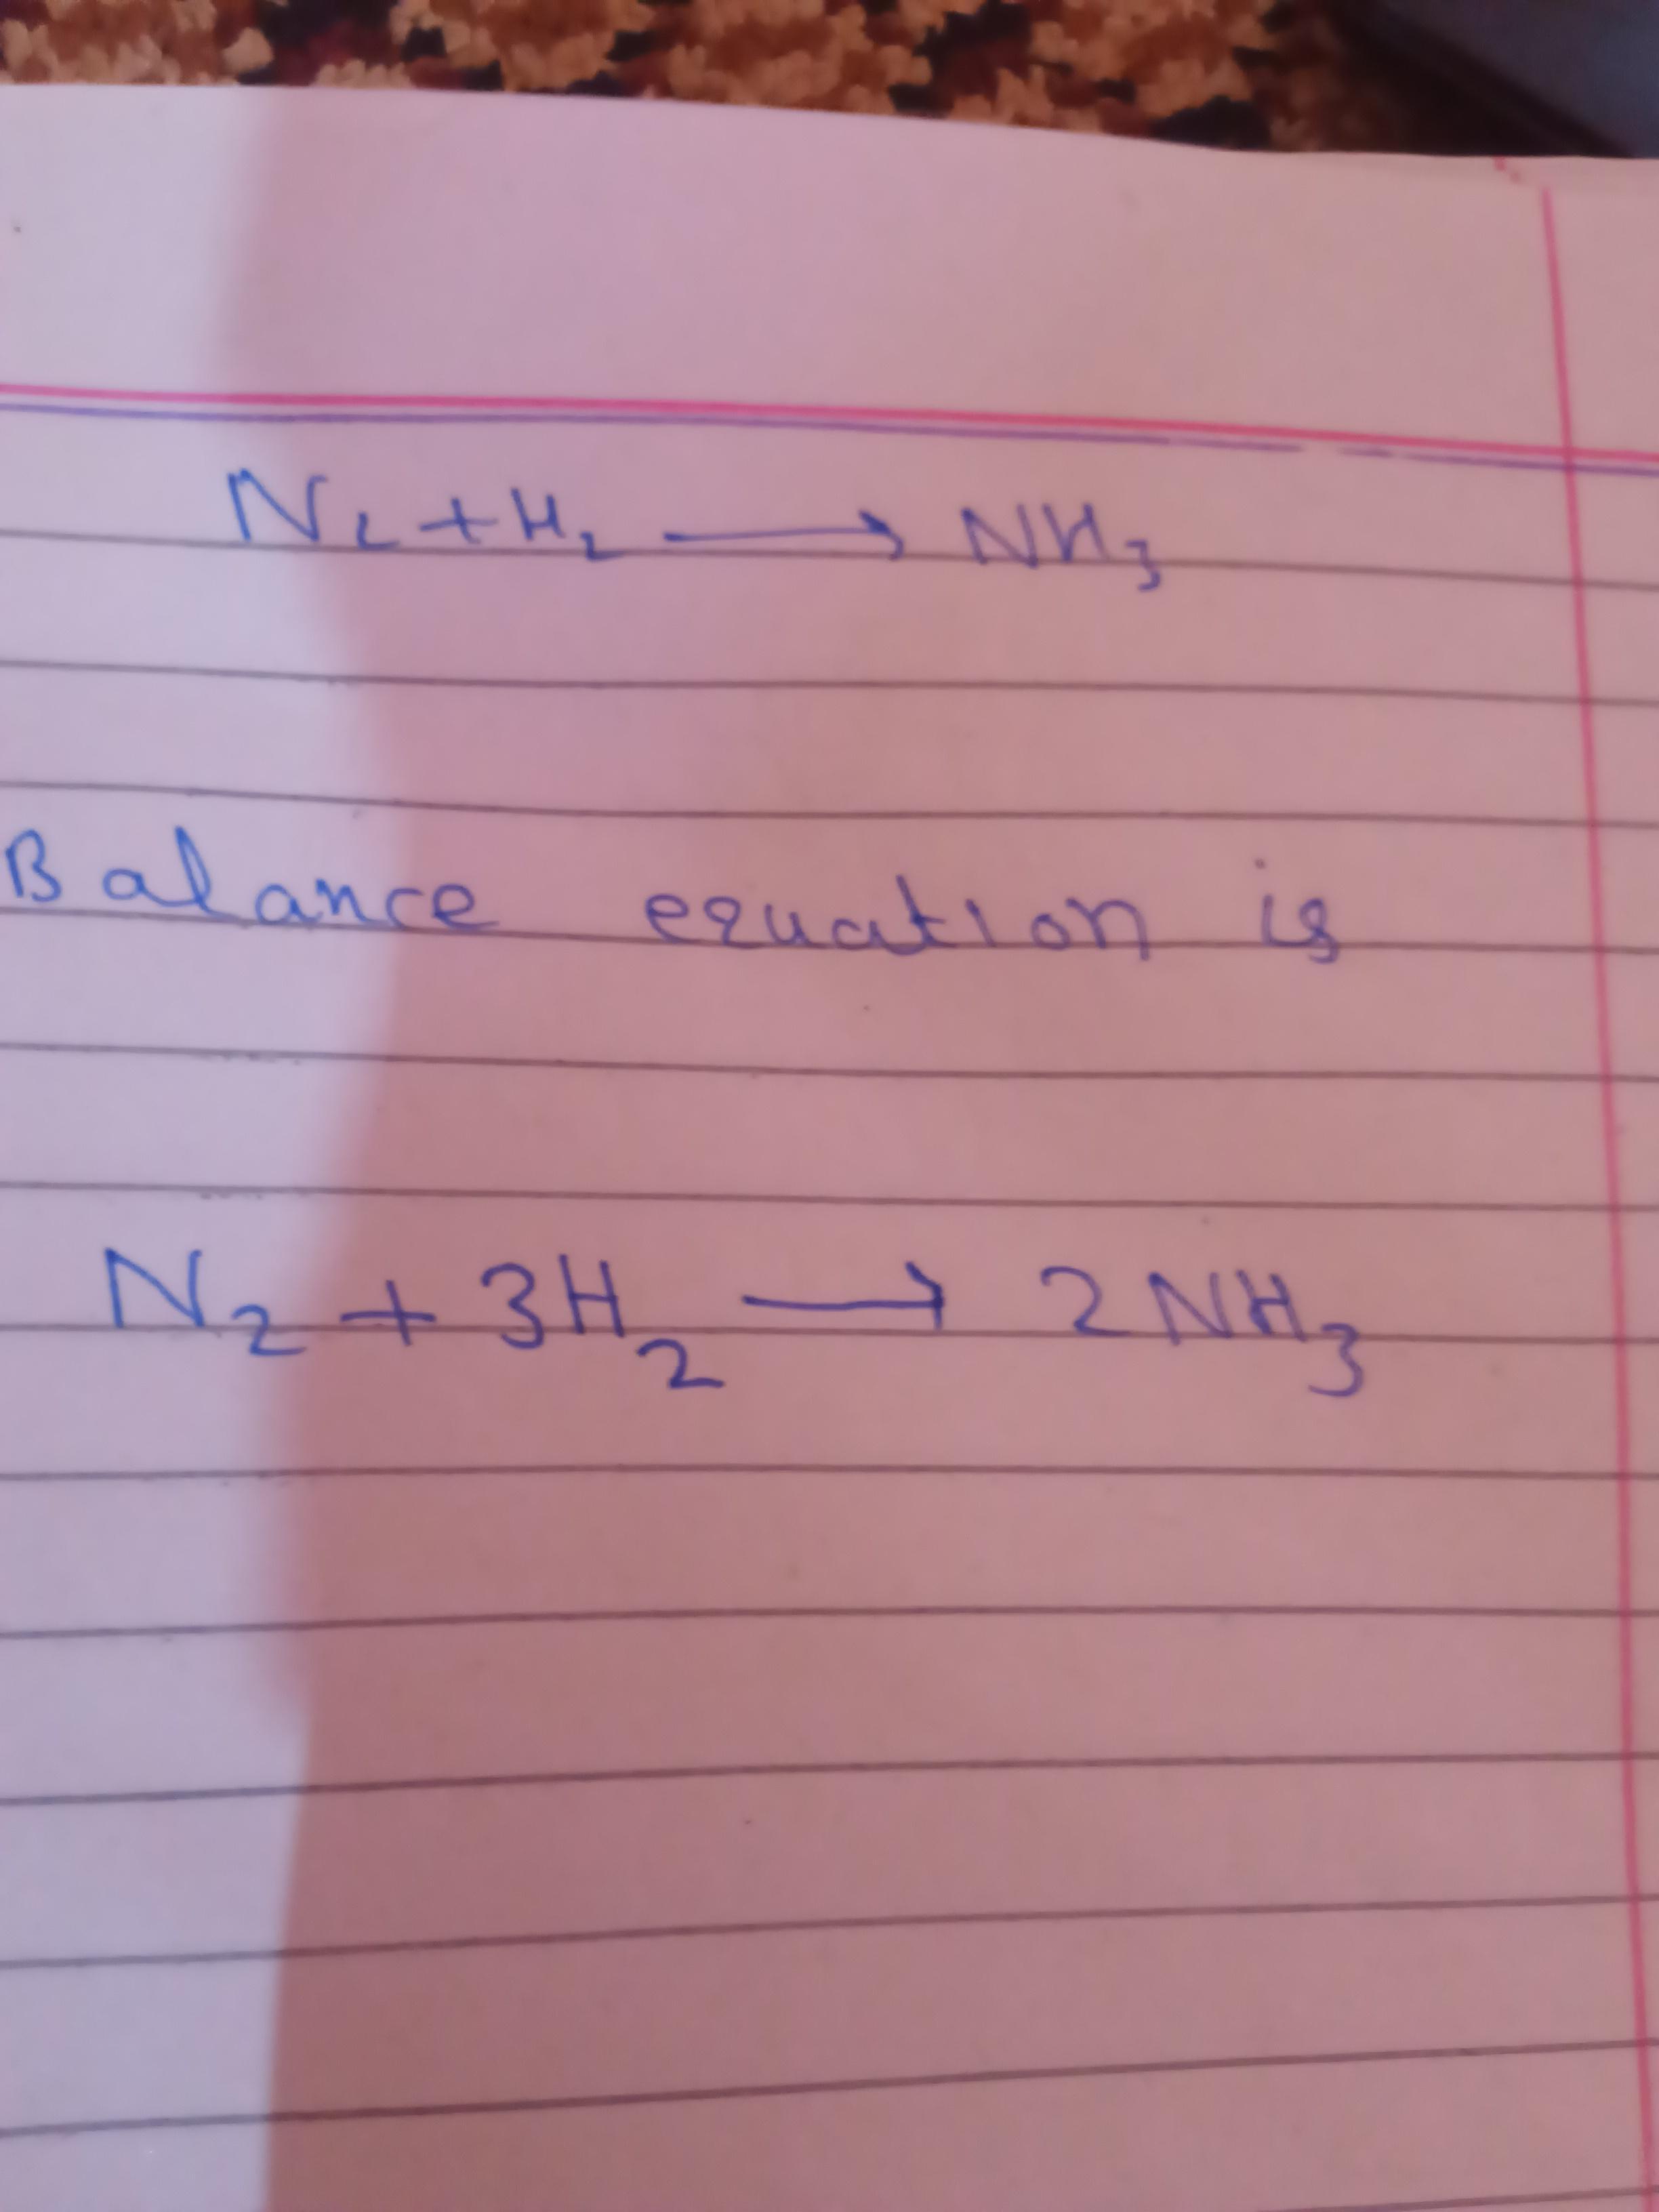 N₂ + H₂ ⟶ NH₃
Balance equation is
N₂ + 3H₂ ⟶ 2NH₃